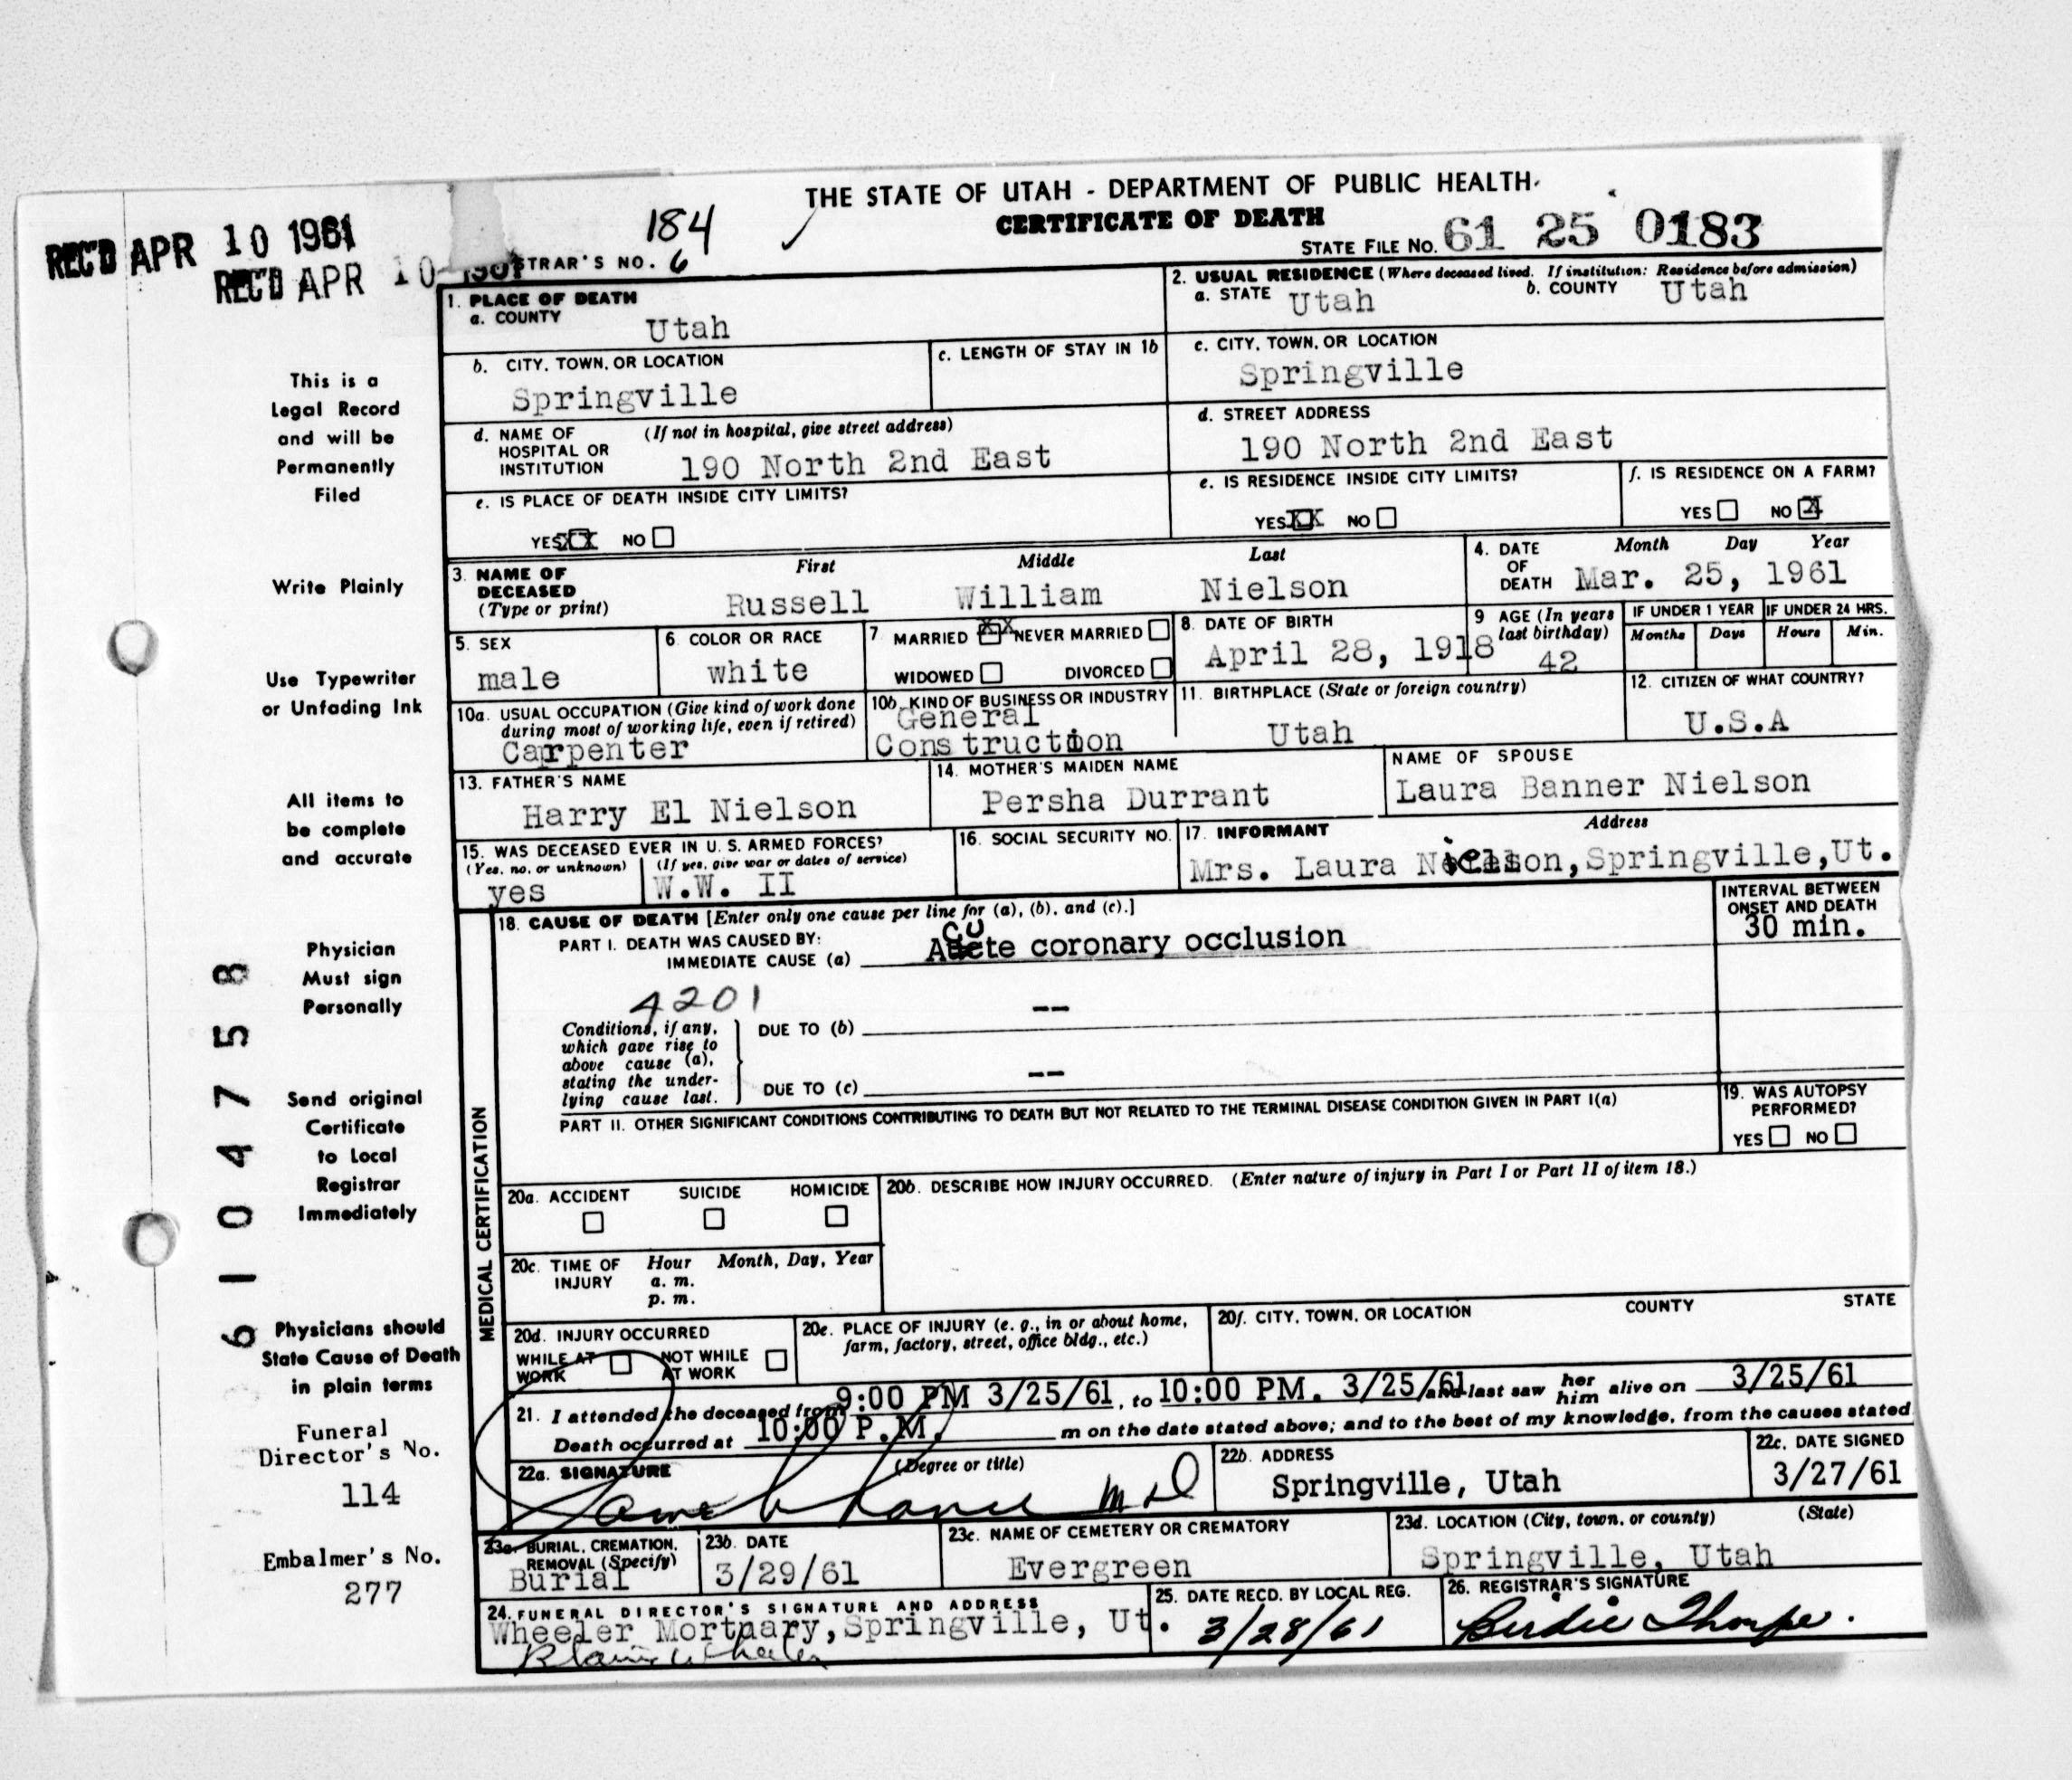 THE STATE OF UTAH - DEPARTMENT OF PUBLIC HEALTH
CERTIFICATE OF DEATH
STATE FILE NO. 61 25 0183
REC'D APR 10 1961
REC'D APR 10
184
STRAR'S NO. 6
1. PLACE OF DEATH
a. COUNTY
Utah
2. USUAL RESIDENCE (Where deceased lived. If institution: Residence before admission)
a. STATE Utah b. COUNTY Utah
b. CITY, TOWN, OR LOCATION
Springville
c. LENGTH OF STAY IN 1b
c. CITY, TOWN, OR LOCATION
Springville
d. NAME OF HOSPITAL OR INSTITUTION (If not in hospital, give street address)
190 North 2nd East
d. STREET ADDRESS
190 North 2nd East
e. IS PLACE OF DEATH INSIDE CITY LIMITS?
YES XX NO
e. IS RESIDENCE INSIDE CITY LIMITS?
YES XX NO
f. IS RESIDENCE ON A FARM?
YES NO X
3. NAME OF DECEASED (Type or print)
First Middle Last
Russell William Nielson
4. DATE OF DEATH Month Day Year
Mar. 25, 1961
5. SEX
male
6. COLOR OR RACE
white
7. MARRIED XX NEVER MARRIED
WIDOWED DIVORCED
8. DATE OF BIRTH
April 28, 1918
9 AGE (In years last birthday)
42
IF UNDER 1 YEAR
Months Days
IF UNDER 24 HRS.
Hours Min.
10a. USUAL OCCUPATION (Give kind of work done during most of working life, even if retired)
Carpenter
10b. KIND OF BUSINESS OR INDUSTRY
General
Construction
11. BIRTHPLACE (State or foreign country)
Utah
12. CITIZEN OF WHAT COUNTRY?
U.S.A
13. FATHER'S NAME
Harry El Nielson
14. MOTHER'S MAIDEN NAME
Persha Durrant
NAME OF SPOUSE
Laura Banner Nielson
15. WAS DECEASED EVER IN U. S. ARMED FORCES?
(Yes, no, or unknown) (If yes, give war or dates of service)
yes W.W. II
16. SOCIAL SECURITY NO.
17. INFORMANT Address
Mrs. Laura Nielson, Springville, Ut.
MEDICAL CERTIFICATION
18. CAUSE OF DEATH [Enter only one cause per line for (a), (b), and (c).]
PART I. DEATH WAS CAUSED BY:
IMMEDIATE CAUSE (a) Acute coronary occlusion
INTERVAL BETWEEN ONSET AND DEATH
30 min.
4201
Conditions, if any, which gave rise to above cause (a), stating the underlying cause last.
DUE TO (b) --
DUE TO (c) --
PART II. OTHER SIGNIFICANT CONDITIONS CONTRIBUTING TO DEATH BUT NOT RELATED TO THE TERMINAL DISEASE CONDITION GIVEN IN PART I(a)
19. WAS AUTOPSY PERFORMED?
YES NO
20a. ACCIDENT SUICIDE HOMICIDE
20b. DESCRIBE HOW INJURY OCCURRED. (Enter nature of injury in Part I or Part II of item 18.)
20c. TIME OF INJURY Hour Month, Day, Year
a. m.
p. m.
20d. INJURY OCCURRED
WHILE AT WORK NOT WHILE AT WORK
20e. PLACE OF INJURY (e. g., in or about home, farm, factory, street, office bldg., etc.)
20f. CITY, TOWN, OR LOCATION COUNTY STATE
21. I attended the deceased from 9:00 PM 3/25/61, to 10:00 PM. 3/25/61 and last saw her him alive on 3/25/61
Death occurred at 10:00 P.M. m on the date stated above; and to the best of my knowledge, from the causes stated
22a. SIGNATURE (Degree or title)
M D
22b. ADDRESS
Springville, Utah
22c. DATE SIGNED
3/27/61
23a. BURIAL, CREMATION, REMOVAL (Specify)
Burial
23b. DATE
3/29/61
23c. NAME OF CEMETERY OR CREMATORY
Evergreen
23d. LOCATION (City, town, or county) (State)
Springville, Utah
24. FUNERAL DIRECTOR'S SIGNATURE AND ADDRESS
Wheeler Mortuary, Springville, Ut.
25. DATE RECD. BY LOCAL REG.
3/28/61
26. REGISTRAR'S SIGNATURE
Birdie Thorpe.
This is a
Legal Record
and will be
Permanently
Filed
Write Plainly
Use Typewriter
or Unfading Ink
All items to
be complete
and accurate
Physician
Must sign
Personally
Send original
Certificate
to Local
Registrar
Immediately
Physicians should
State Cause of Death
in plain terms
Funeral
Director's No.
114
Embalmer's No.
277
61047758